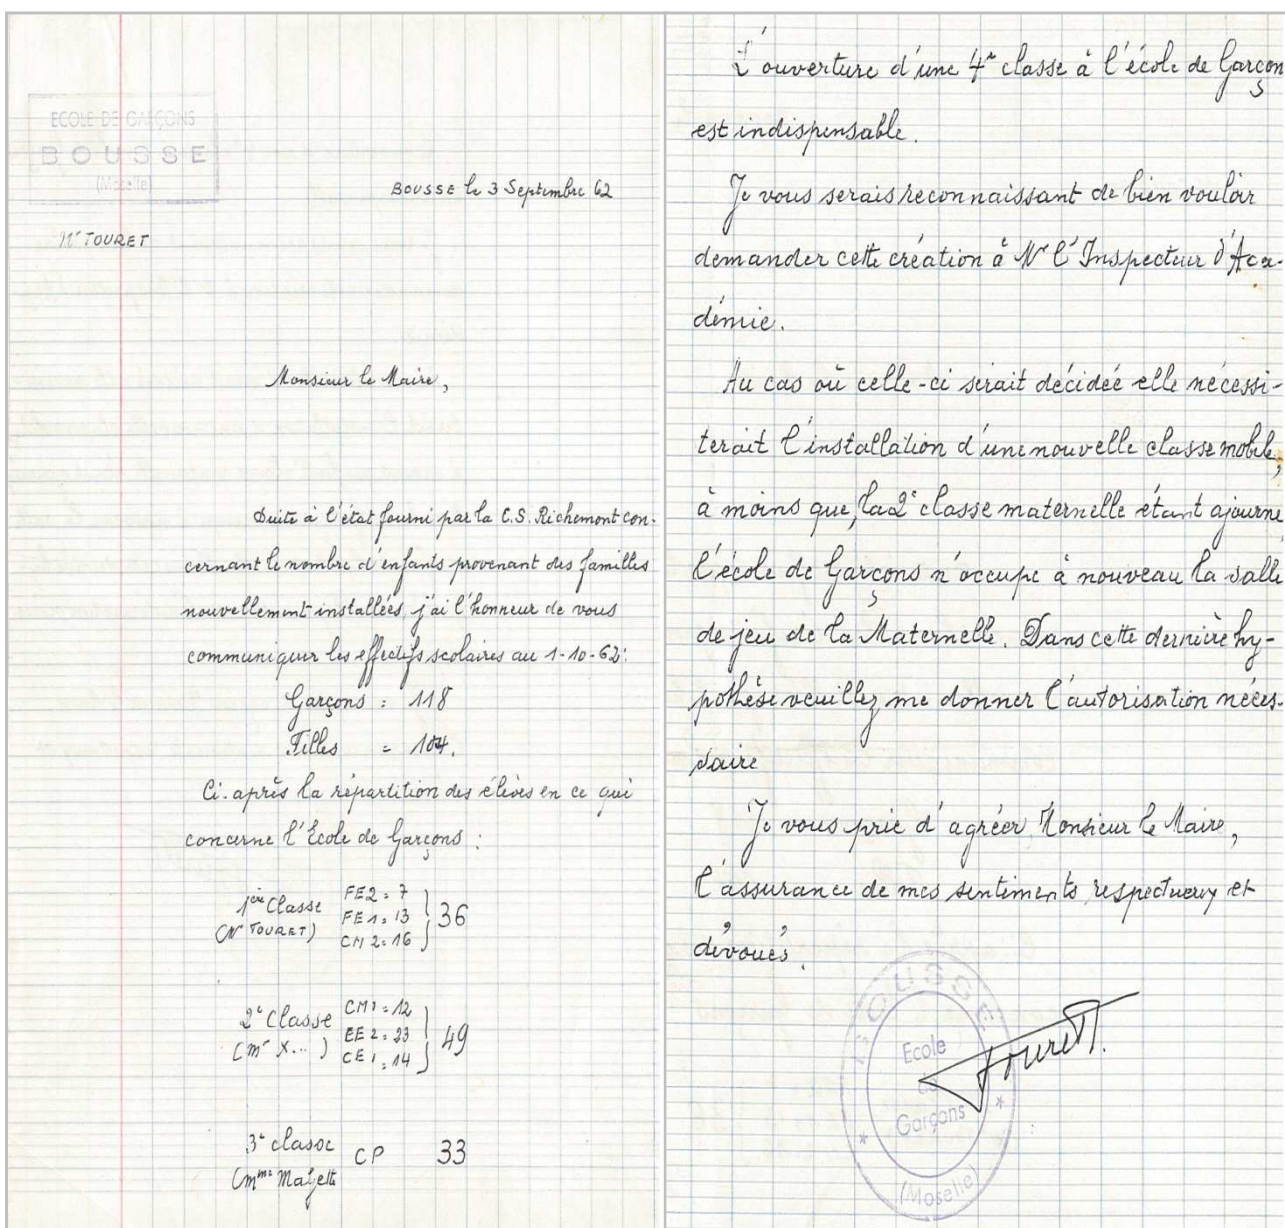 ECOLE DE GARÇONS
BOUSSE
(Moselle)
BOUSSE le 3 Septembre 62
Mr TOURET
Monsieur le Maire,
Suite à l'état fourni par la C.S. Richemont con-
cernant le nombre d'enfants provenant des familles
nouvellement installées, j'ai l'honneur de vous
communiquer les effectifs scolaires au 1-10-62:
Garçons : 118
Filles = 104.
Ci-après la répartition des élèves en ce qui
concerne l'École de Garçons :
1ère Classe FE2 = 7
(Mr TOURET) FE1 = 13 36
CM2 = 16
2e Classe CM1 = 12
(Mr X...) EE2 = 23 49
CE1 = 14
3e classe CP 33
(Mme
L'ouverture d'une 4e classe à l'école de Garçons
est indispensable.
Je vous serais reconnaissant de bien vouloir
demander cette création à Mr l'Inspecteur d'Aca-
démie.
Au cas où celle-ci serait décidée elle nécessi-
terait l'installation d'une nouvelle classe mobile,
à moins que, la 2e classe maternelle étant ajourne
l'école de Garçons n'occupe à nouveau la salle
de jeu de la Maternelle. Dans cette dernière hy-
pothèse veuillez me donner l'autorisation néces-
saire
Je vous prie d'agréer, Monsieur le Maire,
l'assurance de mes sentiments respectueux et
dévoués.
BOUSSE
Ecole
de
Garçons
(Moselle)
Touret